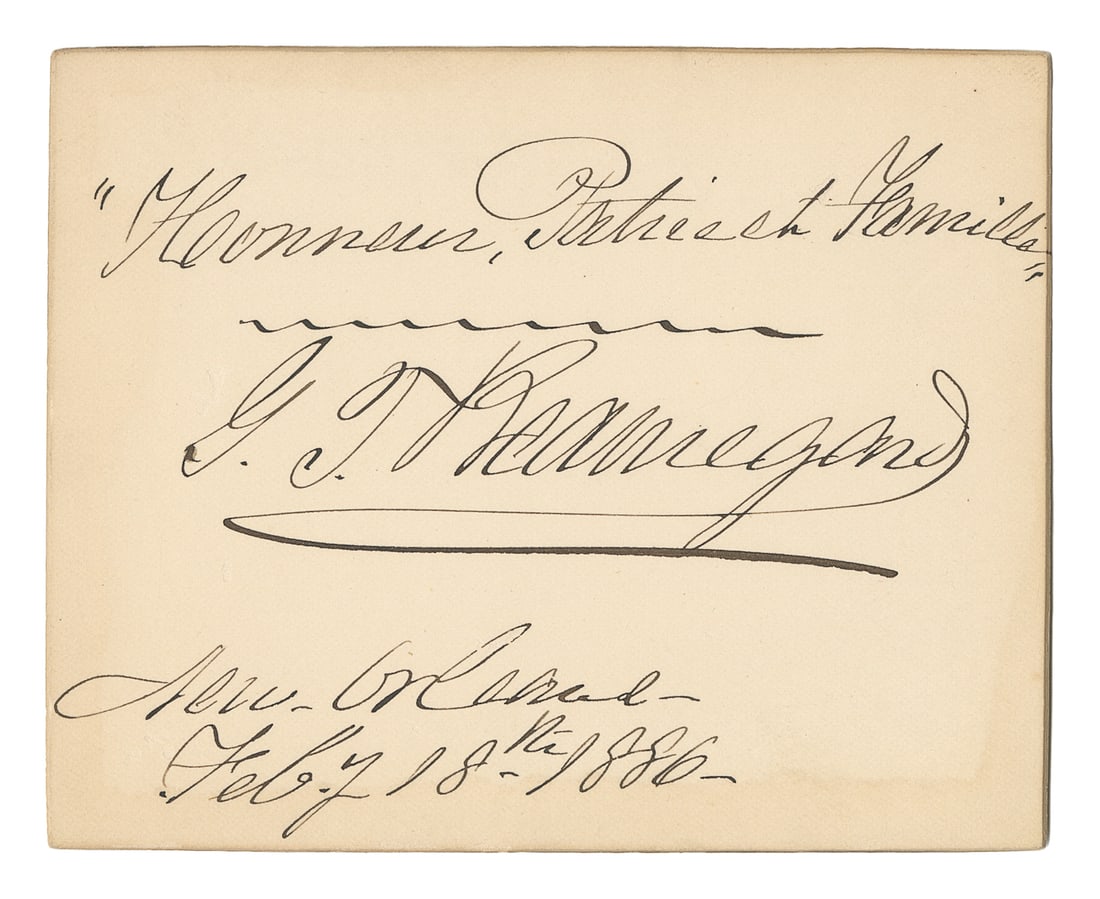 "Honneur, Patrie et Famille"
G. T. Beauregard
New-Orleans-
Feb.y 18-th 1886-